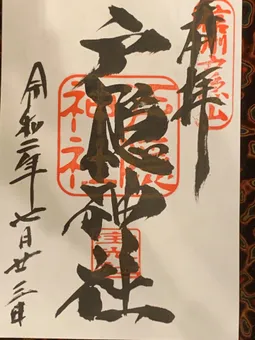 奉拝
戸隠神社
戸隠
神社
令和二年七月廿三日